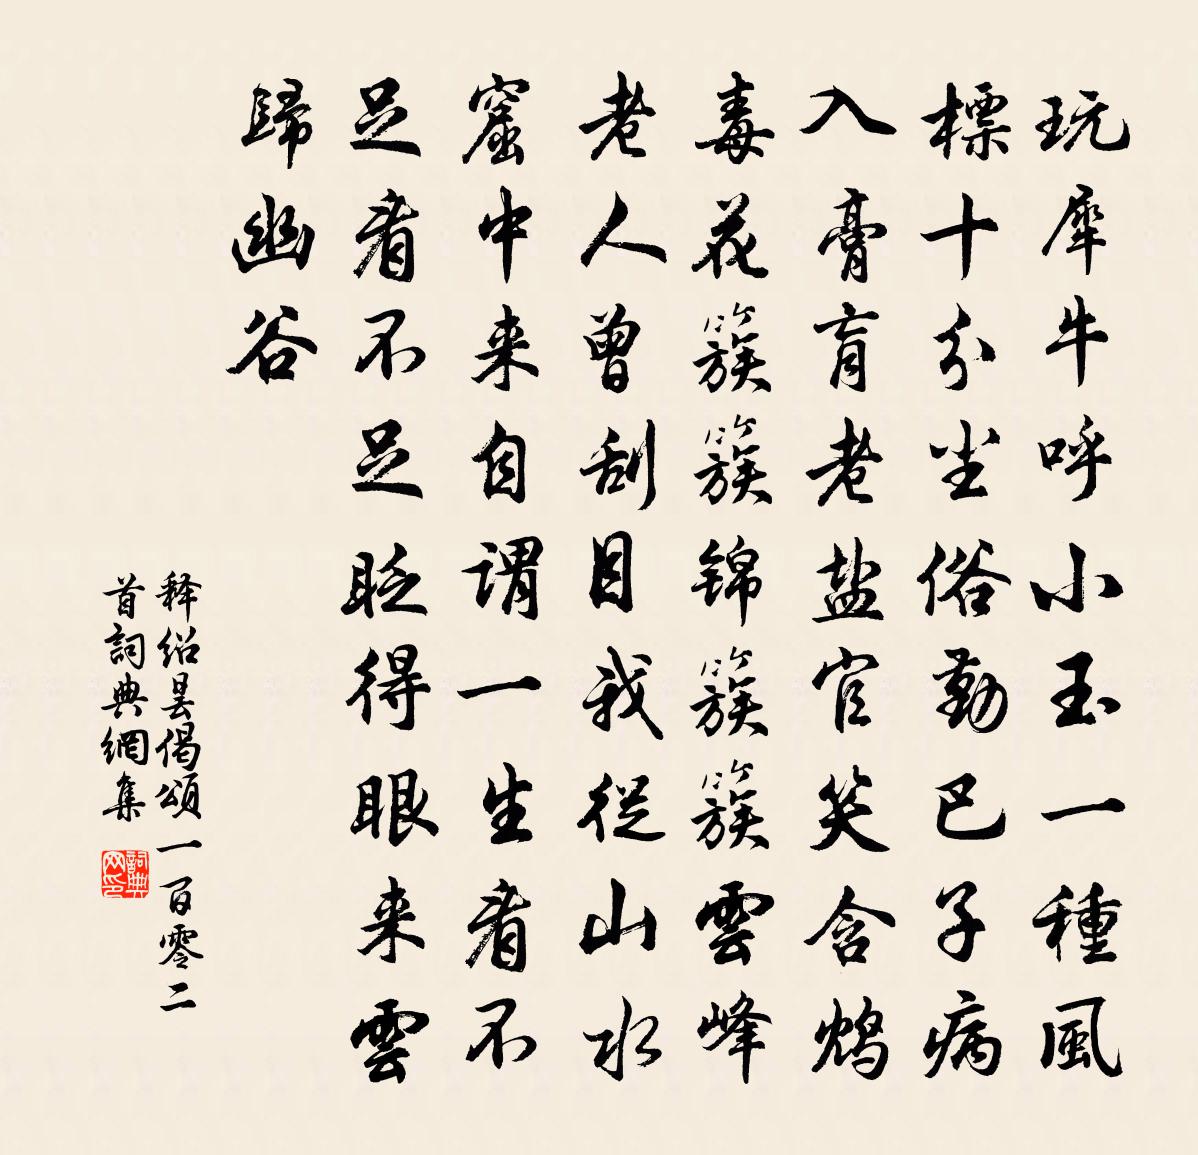 玩犀牛呼小玉一種風
標十分尘俗勤巴子病
入膏肓老盐官笑含鸩
毒花簇簇錦簇簇雲峰
老人曾刮目我從山水
窟中来自謂一生看不
足看不足眨得眼来雲
歸幽谷
释绍昙偈頌一百零二
首詞典網集
詞典网印